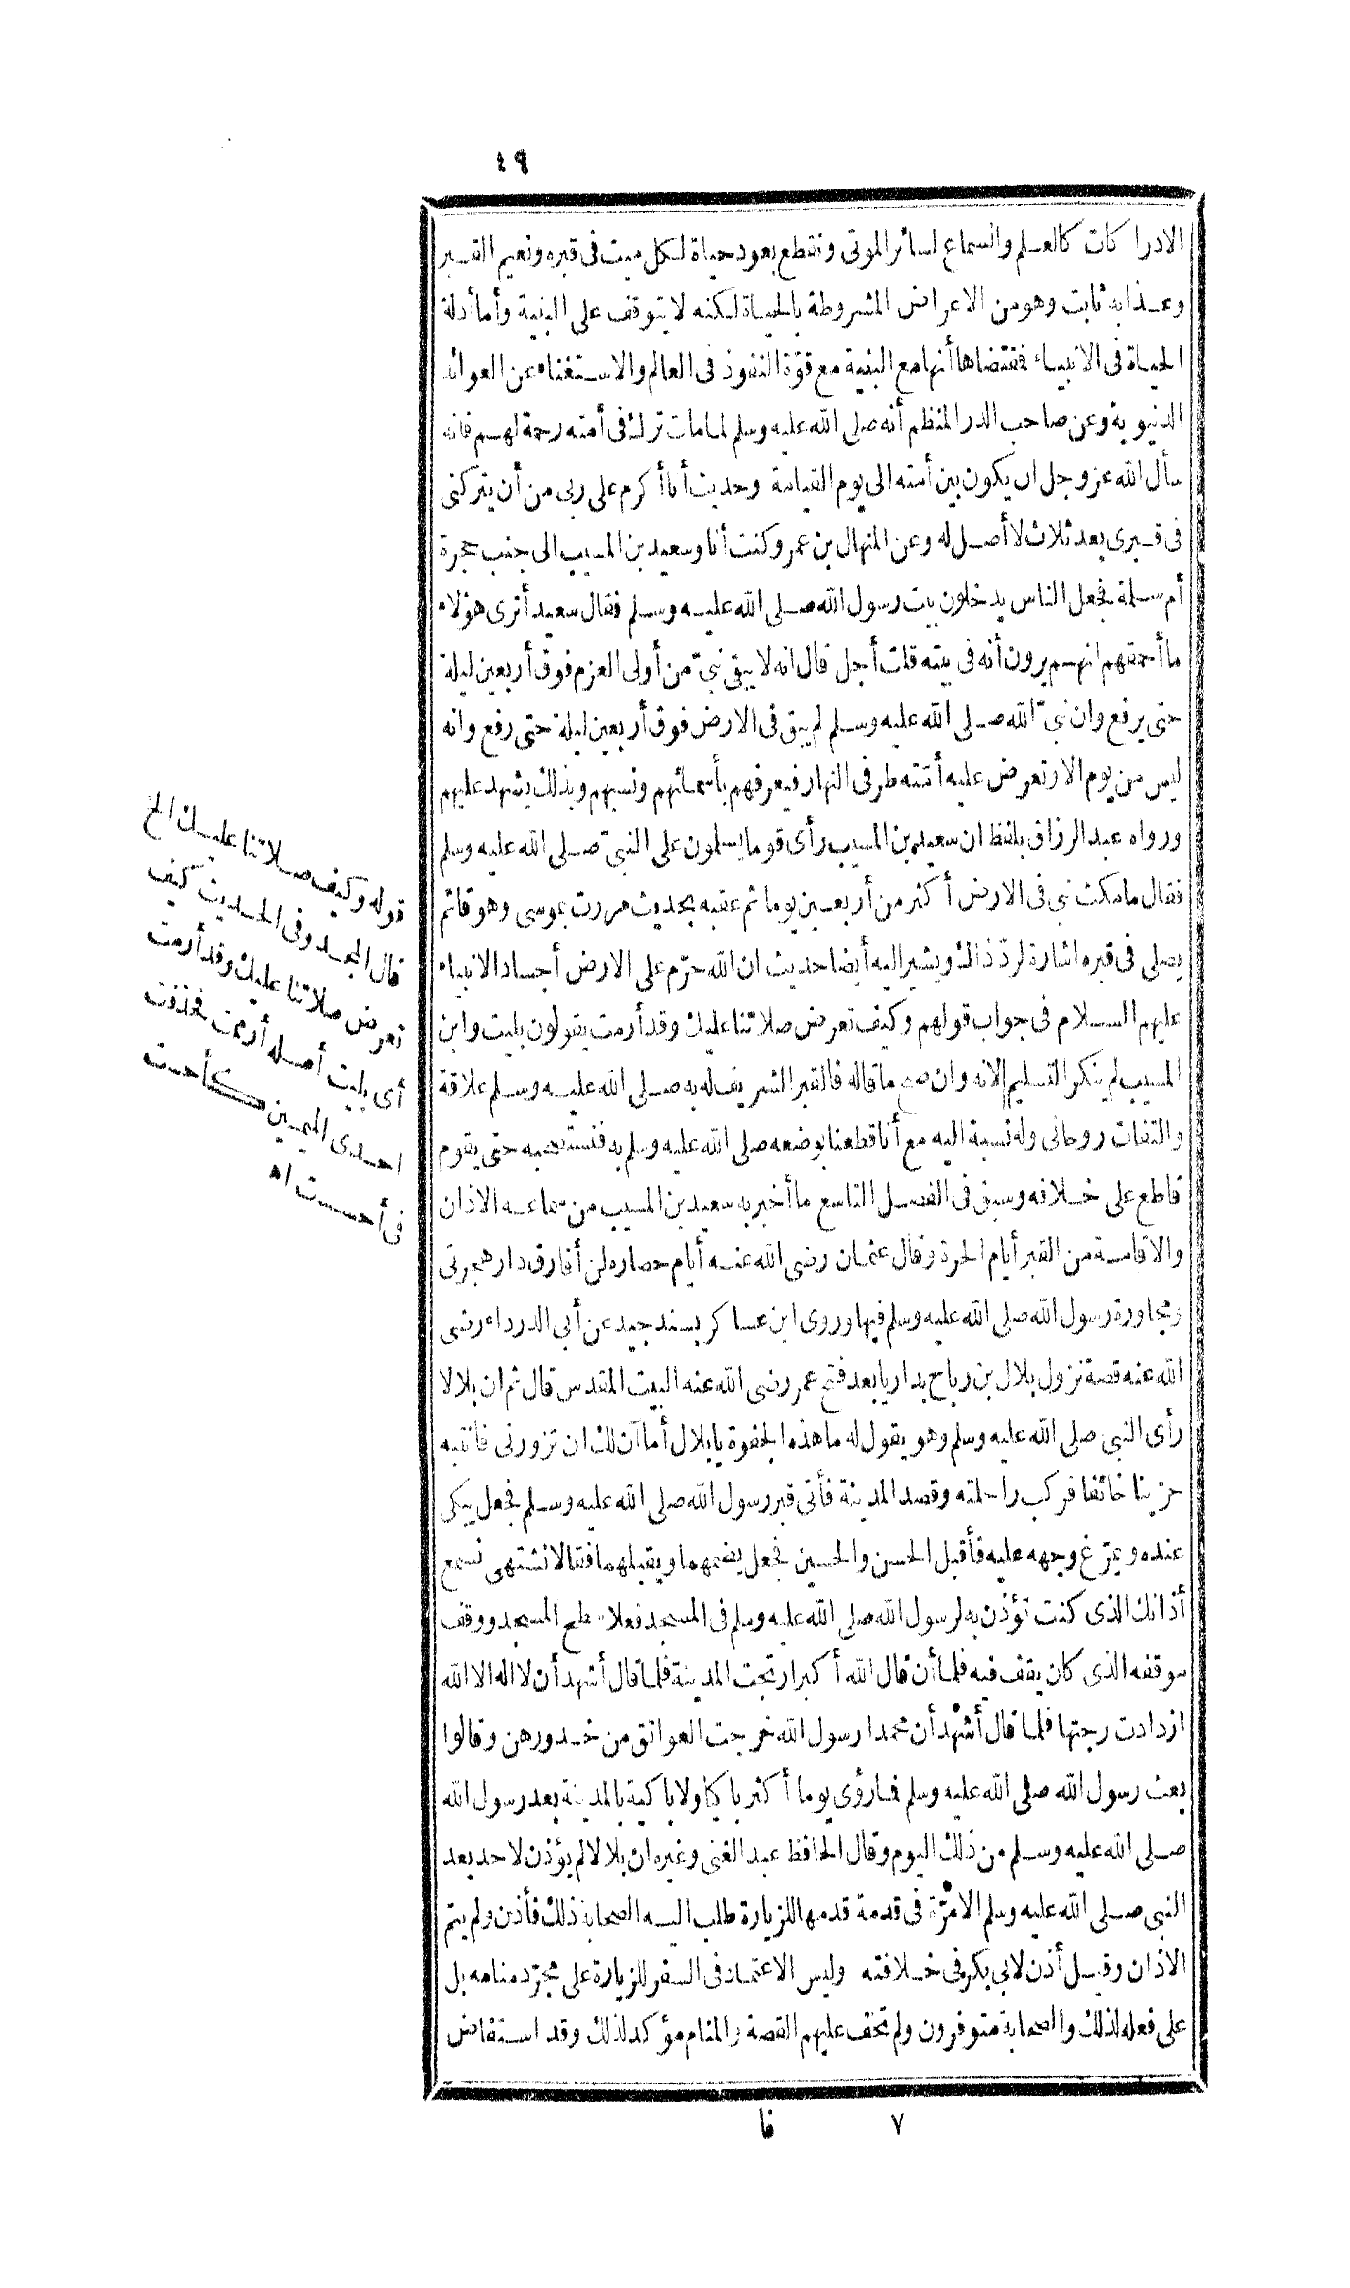 ٤٩
الادراكات كالعلم والسماع لسائر الموتى ونقطع بعود حياة لكل ميت فى قبره ونعيم القبر
وعذابه ثابت وهو من الاعراض المشروطة بالحياة لكنه لا يتوقف على البنية وأما أدلة
الحياة فى الانبياء فمقتضاها أنها مع البنية مع قوّة النفوذ فى العالم والاستغناء عن العوائد
الدنيوية وعن صاحب الدر المنظم أنه صلى الله عليه وسلم لما مات ترك فى أمته رحمة لهم فانه
سأل الله عز وجل ان يكون بين أمته الى يوم القيامة وحديث أنا أكرم على ربى من أن يتركنى
فى قبرى بعد ثلاث لا أصل له وعن المنهال بن عمرو كنت أنا وسعيد بن المسيب الى جنب حجرة
أم سلمة فجعل الناس يدخلون بيت رسول الله صلى الله عليه وسلم فقال سعيد أترى هؤلاء
ما أحمقهم انهم يرون أنه فى بيته قلت أجل قال انه لا يبقى نبىّ من أولى العزم فوق أربعين ليلة
حتى يرفع وان نبىّ الله صلى الله عليه وسلم لم يبق فى الارض فوق أربعين ليلة حتى رفع وانه
ليس من يوم الا وتعرض عليه أمته طرفى النهار فيعرفهم بأسمائهم ونسبهم وبذلك يشهد عليهم
ورواه عبد الرزاق بلفظ ان سعيد بن المسيب رأى قوما يسلمون على النبىّ صلى الله عليه وسلم
فقال ما مكث نبى فى الارض أكثر من أربعين يوما ثم عقبه بحديث مررت بموسى وهو قائم
يصلى فى قبره اشارة لردّ ذلك ويشير اليه أيضا حديث ان الله حرّم على الارض أجساد الانبياء
عليهم السلام فى جواب قولهم وكيف تعرض صلاتنا عليك وقد أرمت يقولون بليت وابن
المسيب لم ينكر التسليم الا أنه وان صح ما قاله فالقبر الشريف له به صلى الله عليه وسلم علاقة
والتفات روحانى وله نسبة اليه مع أنا قطعنا بوضعه صلى الله عليه وسلم به فنستصحبه حتى يقوم
قاطع على خلافه وسبق فى الفصل التاسع ما أخبر به سعيد بن المسيب من سماعه الاذان
والاقامة من القبر أيام الحرة وقال عثمان رضى الله عنه أيام حصاره لن أفارق دار هجرتى
ومجاورة رسول الله صلى الله عليه وسلم فيها وروى ابن عساكر بسند جيد عن أبى الدرداء رضى
الله عنه قصة نزول بلال بن رباح بداريا بعد فتح عمر رضى الله عنه البيت المقدس قال ثم ان بلالا
رأى النبى صلى الله عليه وسلم وهو يقول له ما هذه الجفوة يا بلال أما آن لك ان تزورنى فانتبه
حزينا خائفا فركب راحلته وقصد المدينة فأتى قبر رسول الله صلى الله عليه وسلم فجعل يبكى
عنده ويمرّغ وجهه عليه فأقبل الحسن والحسين فجعل يضمهما ويقبلهما فقالا نشتهى نسمع
أذانك الذى كنت تؤذن به لرسول الله صلى الله عليه وسلم فى المسجد فعلا سطح المسجد ووقف
موقفه الذى كان يقف فيه فلما أن قال الله أكبر ارتجت المدينة فلما قال أشهد أن لا اله الا الله
ازدادت رجتها فلما قال أشهد أن محمدا رسول الله خرجت العواتق من خدورهن وقالوا
بعث رسول الله صلى الله عليه وسلم فما رؤى يوما أكثر باكيا ولا باكية بالمدينة بعد رسول الله
صلى الله عليه وسلم من ذلك اليوم وقال الحافظ عبد الغنى وغيره ان بلالا لم يؤذن لاحد بعد
النبى صلى الله عليه وسلم الا مرّة فى قدمة قدمها للزيارة طلب اليه الصحابة ذلك فأذن ولم يتم
الاذان وقيل أذن لابى بكر فى خلافته وليس الاعتماد فى السفر للزيارة على مجرّد منامه بل
على فعله لذلك والصحابة متوفرون ولم تخف عليهم القصة والمنام مؤكد لذلك وقد استفاض
قوله وكيف صلاتنا عليك الخ
قال المجد وفى الحديث كيف
تعرض صلاتنا عليك وقد أرمت
أى بليت أصله أرممت فحذفت
احدى الميمين كأحست
فى أحسست اه
٧
فا